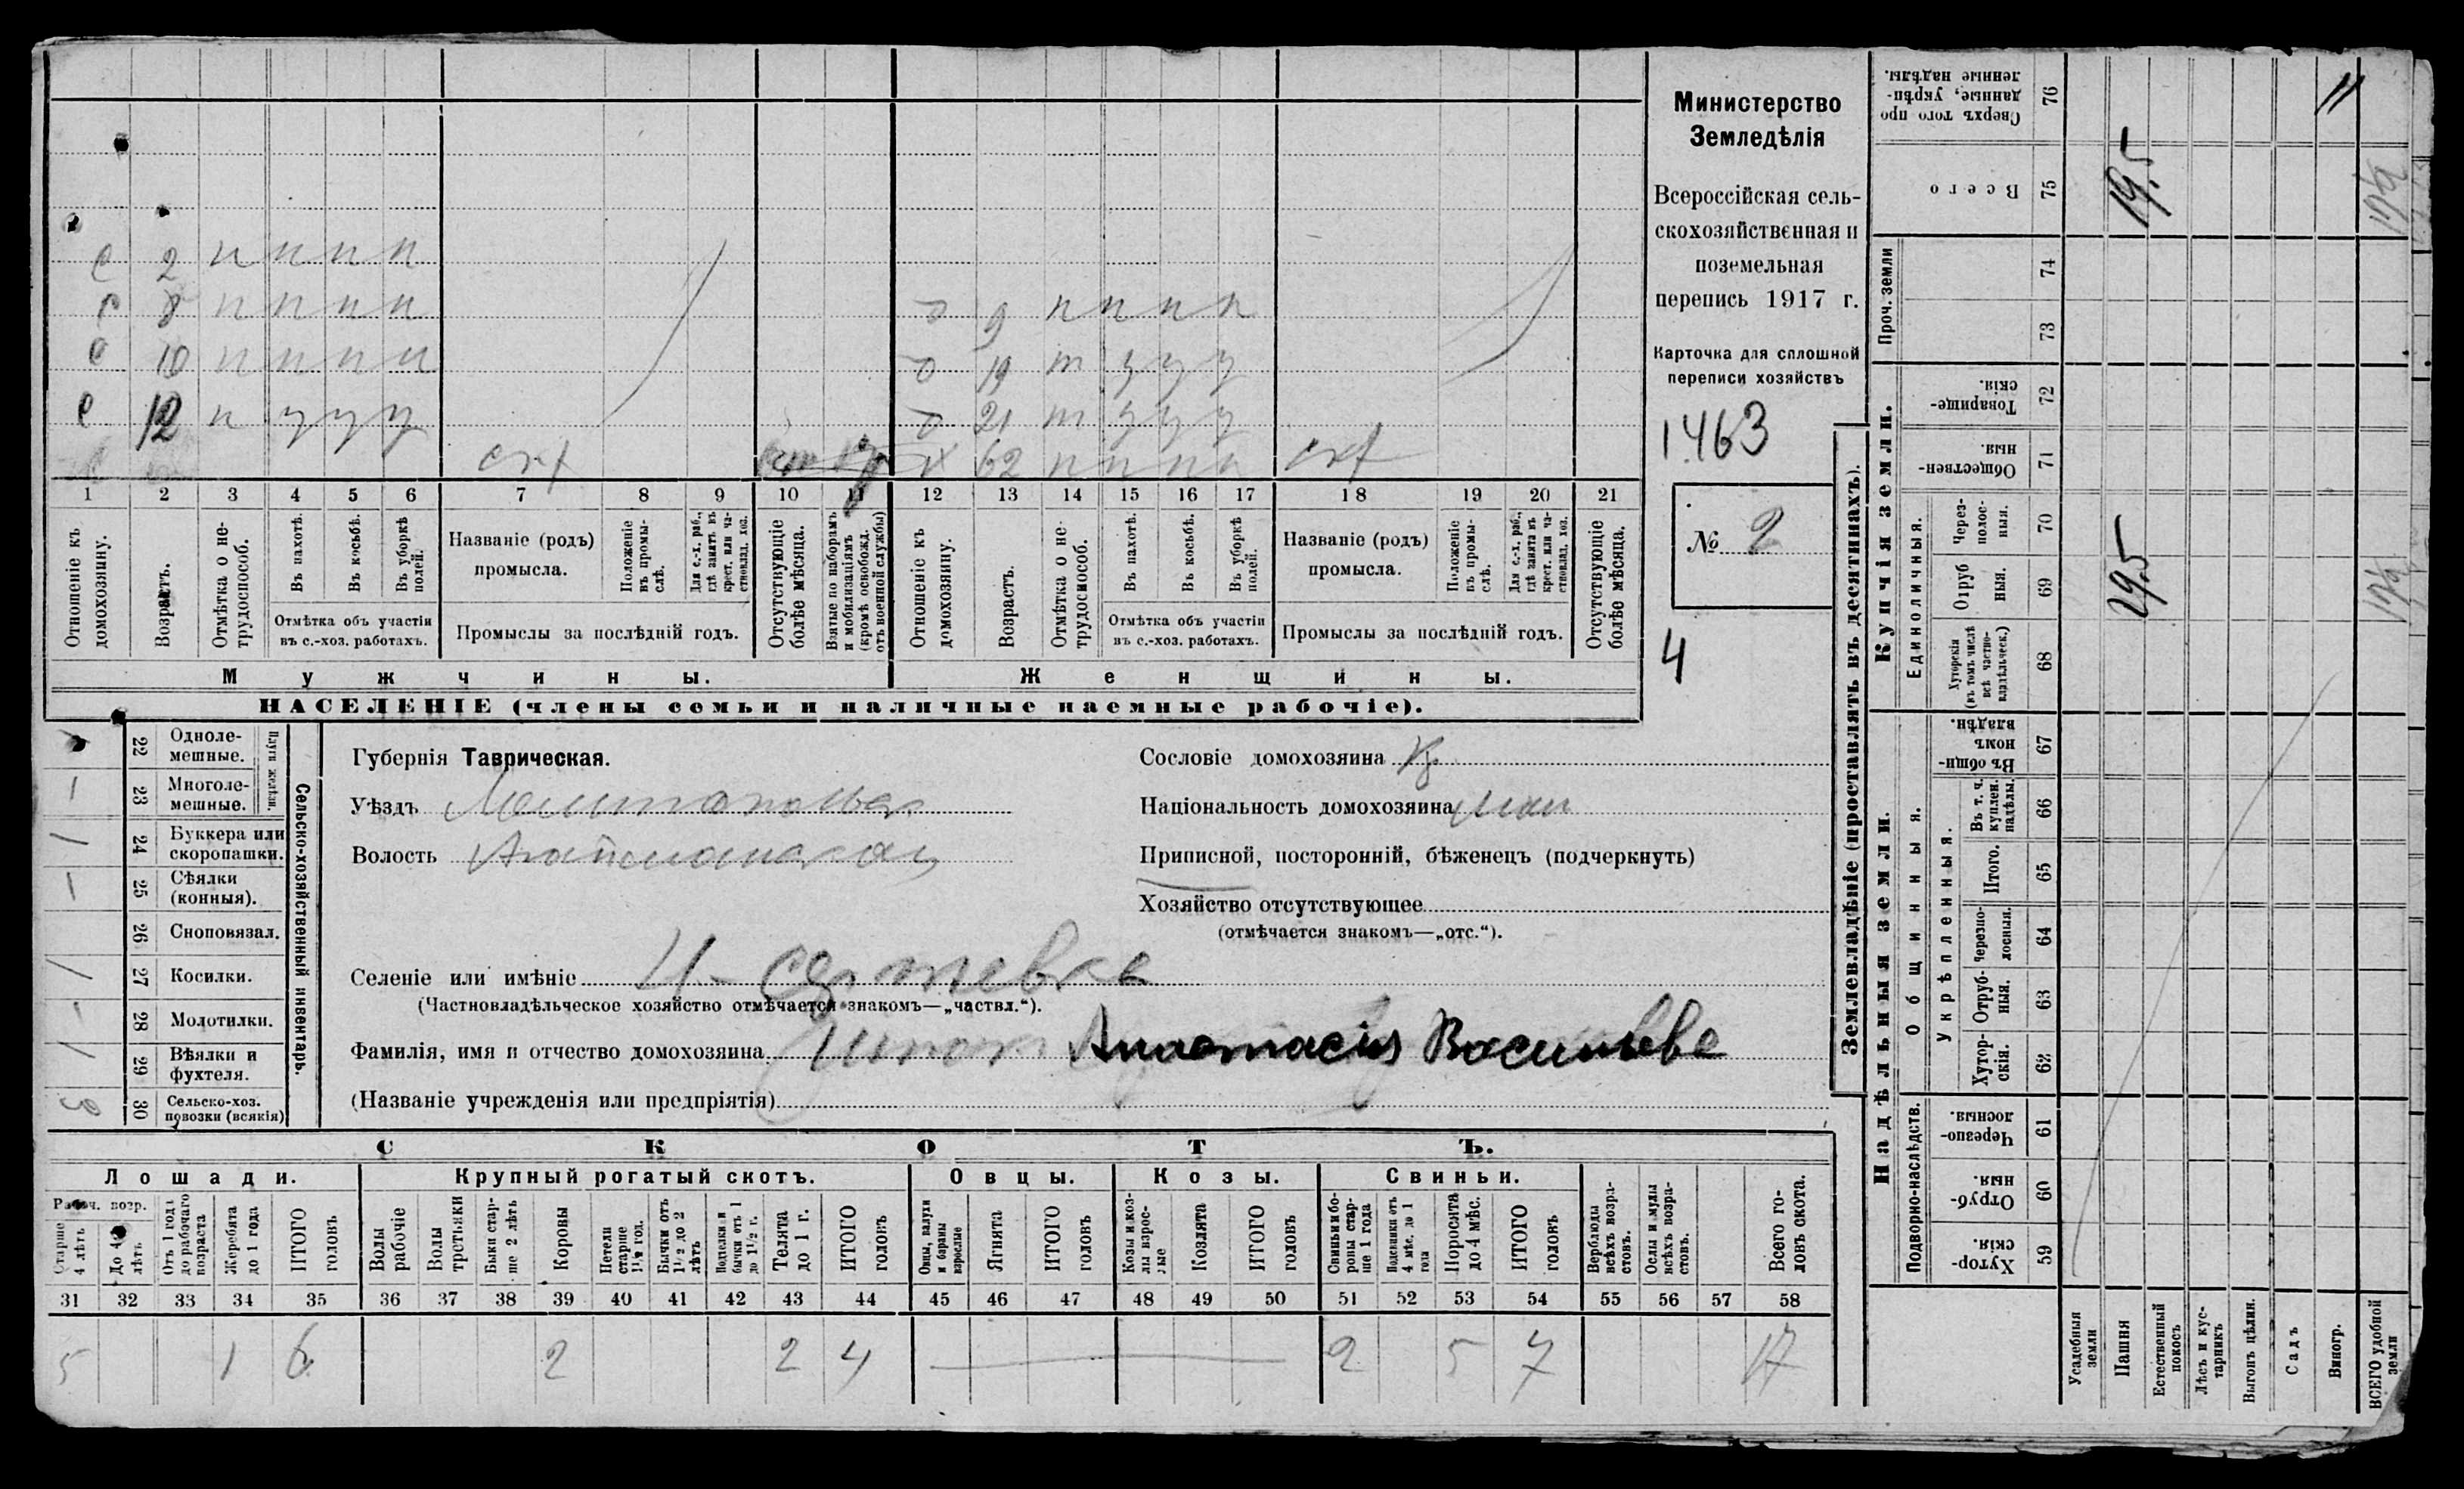 Министерство
Земледѣлія
Всероссійская сель-
скохозяйственная и
поземельная
перепись 1917 г.
Карточка для сплошной
переписи хозяйствъ
1463
№ 2
4
с 2 н н н н
с 8 н н н н
с 10 н н н н
с 12 н у у у
схх
д 9 н н н н
д 19 т у у у
д 21 т у у у
х 62 н н н н схх
1 2 3 4 5 6 7 8 9 10 11 12 13 14 15 16 17 18 19 20 21
Отношеніе къ домохозяину.
Возрастъ.
Отмѣтка о не-трудоспособ.
Въ пахотѣ.
Въ косьбѣ.
Въ уборкѣ полей.
Отмѣтка объ участіи
въ с.-хоз. работахъ.
Названіе (родъ)
промысла.
Положеніе въ промы-слѣ.
Для с.-х. раб., гдѣ занятъ въ крест. или ча-стновлад. хоз.
Промыслы за послѣдній годъ.
Отсутствующіе болѣе мѣсяца.
Взятые по наборамъ и мобилизаціямъ (кромѣ освобожд. отъ военной службы)
Отношеніе къ домохозяину.
Возрастъ.
Отмѣтка о не-трудоспособ.
Въ пахотѣ.
Въ косьбѣ.
Въ уборкѣ полей.
Отмѣтка объ участіи
въ с.-хоз. работахъ.
Названіе (родъ)
промысла.
Положеніе въ промы-слѣ.
Для с.-х. раб., гдѣ занята въ крест. или ча-стновлад. хоз.
Промыслы за послѣдній годъ.
Отсутствующіе болѣе мѣсяца.
Мужчины.
Женщины.
НАСЕЛЕНІЕ (члены семьи и наличные наемные рабочіе).
22 Одноле-мешные.
1 23 Многоле-мешные.
Плуги желѣзн.
1 24 Буккера или скоропашки.
1 25 Сѣялки (конныя).
26 Сноповязал.
1 27 Косилки.
28 Молотилки.
1 29 Вѣялки и фухтеля.
30 Сельско-хоз. повозки (всякія)
Сельско-хозяйственный инвентарь.
Губернія Таврическая.
Уѣздъ
Волость
Селеніе или имѣніе
(Частновладѣльческое хозяйство отмѣчается знакомъ—„частвл.“).
Фамилія, имя и отчество домохозяина Анастасія Васильева
(Названіе учрежденія или предпріятія)
Сословіе домохозяина кр
Національность домохозяина
Приписной, посторонній, бѣженецъ (подчеркнуть)
Хозяйство отсутствующее
(отмѣчается знакомъ—„отс.“).
СКОТЪ.
Лошади.
Крупный рогатый скотъ.
Овцы.
Козы.
Свиньи.
Рабоч. возр.
Старше 4 лѣтъ
До 4 лѣтъ
Отъ 1 года до рабочаго возраста
Жеребята до 1 года
ИТОГО головъ
Волы рабочіе
Волы третьяки
Быки стар-ше 2 лѣтъ
Коровы
Нетели старше 1½ год.
Бычки отъ 1½ до 2 лѣтъ
Подтелки и бычки отъ 1 до 1½ г.
Телята до 1 г.
ИТОГО головъ
Овцы, валухи и бараны взрослые
Ягнята
ИТОГО головъ
Козы и коз-лы взрос-лые
Козлята
ИТОГО головъ
Свиньи и бо-ровы стар-ше 1 года
Подсвинки отъ 4 мѣс. до 1 года
Поросята до 4 мѣс.
ИТОГО головъ
Верблюды всѣхъ возра-стовъ.
Ослы и мулы всѣхъ возра-стовъ.
Всего го-ловъ скота.
31 32 33 34 35 36 37 38 39 40 41 42 43 44 45 46 47 48 49 50 51 52 53 54 55 56 57 58
5 1 6 2 2 4 2 5 7 17
Землевладѣніе (проставлять въ десятинахъ).
Надѣльныя земли.
Купчія земли.
Проч. земли
Подворно-наслѣдств.
Общинныя.
Укрѣпленныя.
Единоличныя.
59 Хутор-скія.
60 Отруб-ныя.
61 Черезпо-лосныя.
62 Хутор-скія.
63 Отруб-ныя.
64 Черезпо-лосныя.
65 Итого.
66 Въ т. ч. куплен. надѣлы.
67 Въ общин-номъ владѣн.
68 Хуторскія (въ томъ числѣ всѣ частно-владѣльческ.)
69 Отруб ныя.
70 Через-полос-ныя.
71 Обществен-ныя.
72 Товарище-скія.
73
74
75 Всего
76 Сверхъ того про данные, укрѣп-ленные надѣлы.
Усадебныя земли
Пашня
Естественный покосъ
Лѣсъ и кус-тарникъ
Выгонъ цѣлин.
Садъ
Виногр.
ВСЕГО удобной земли
19,5
11